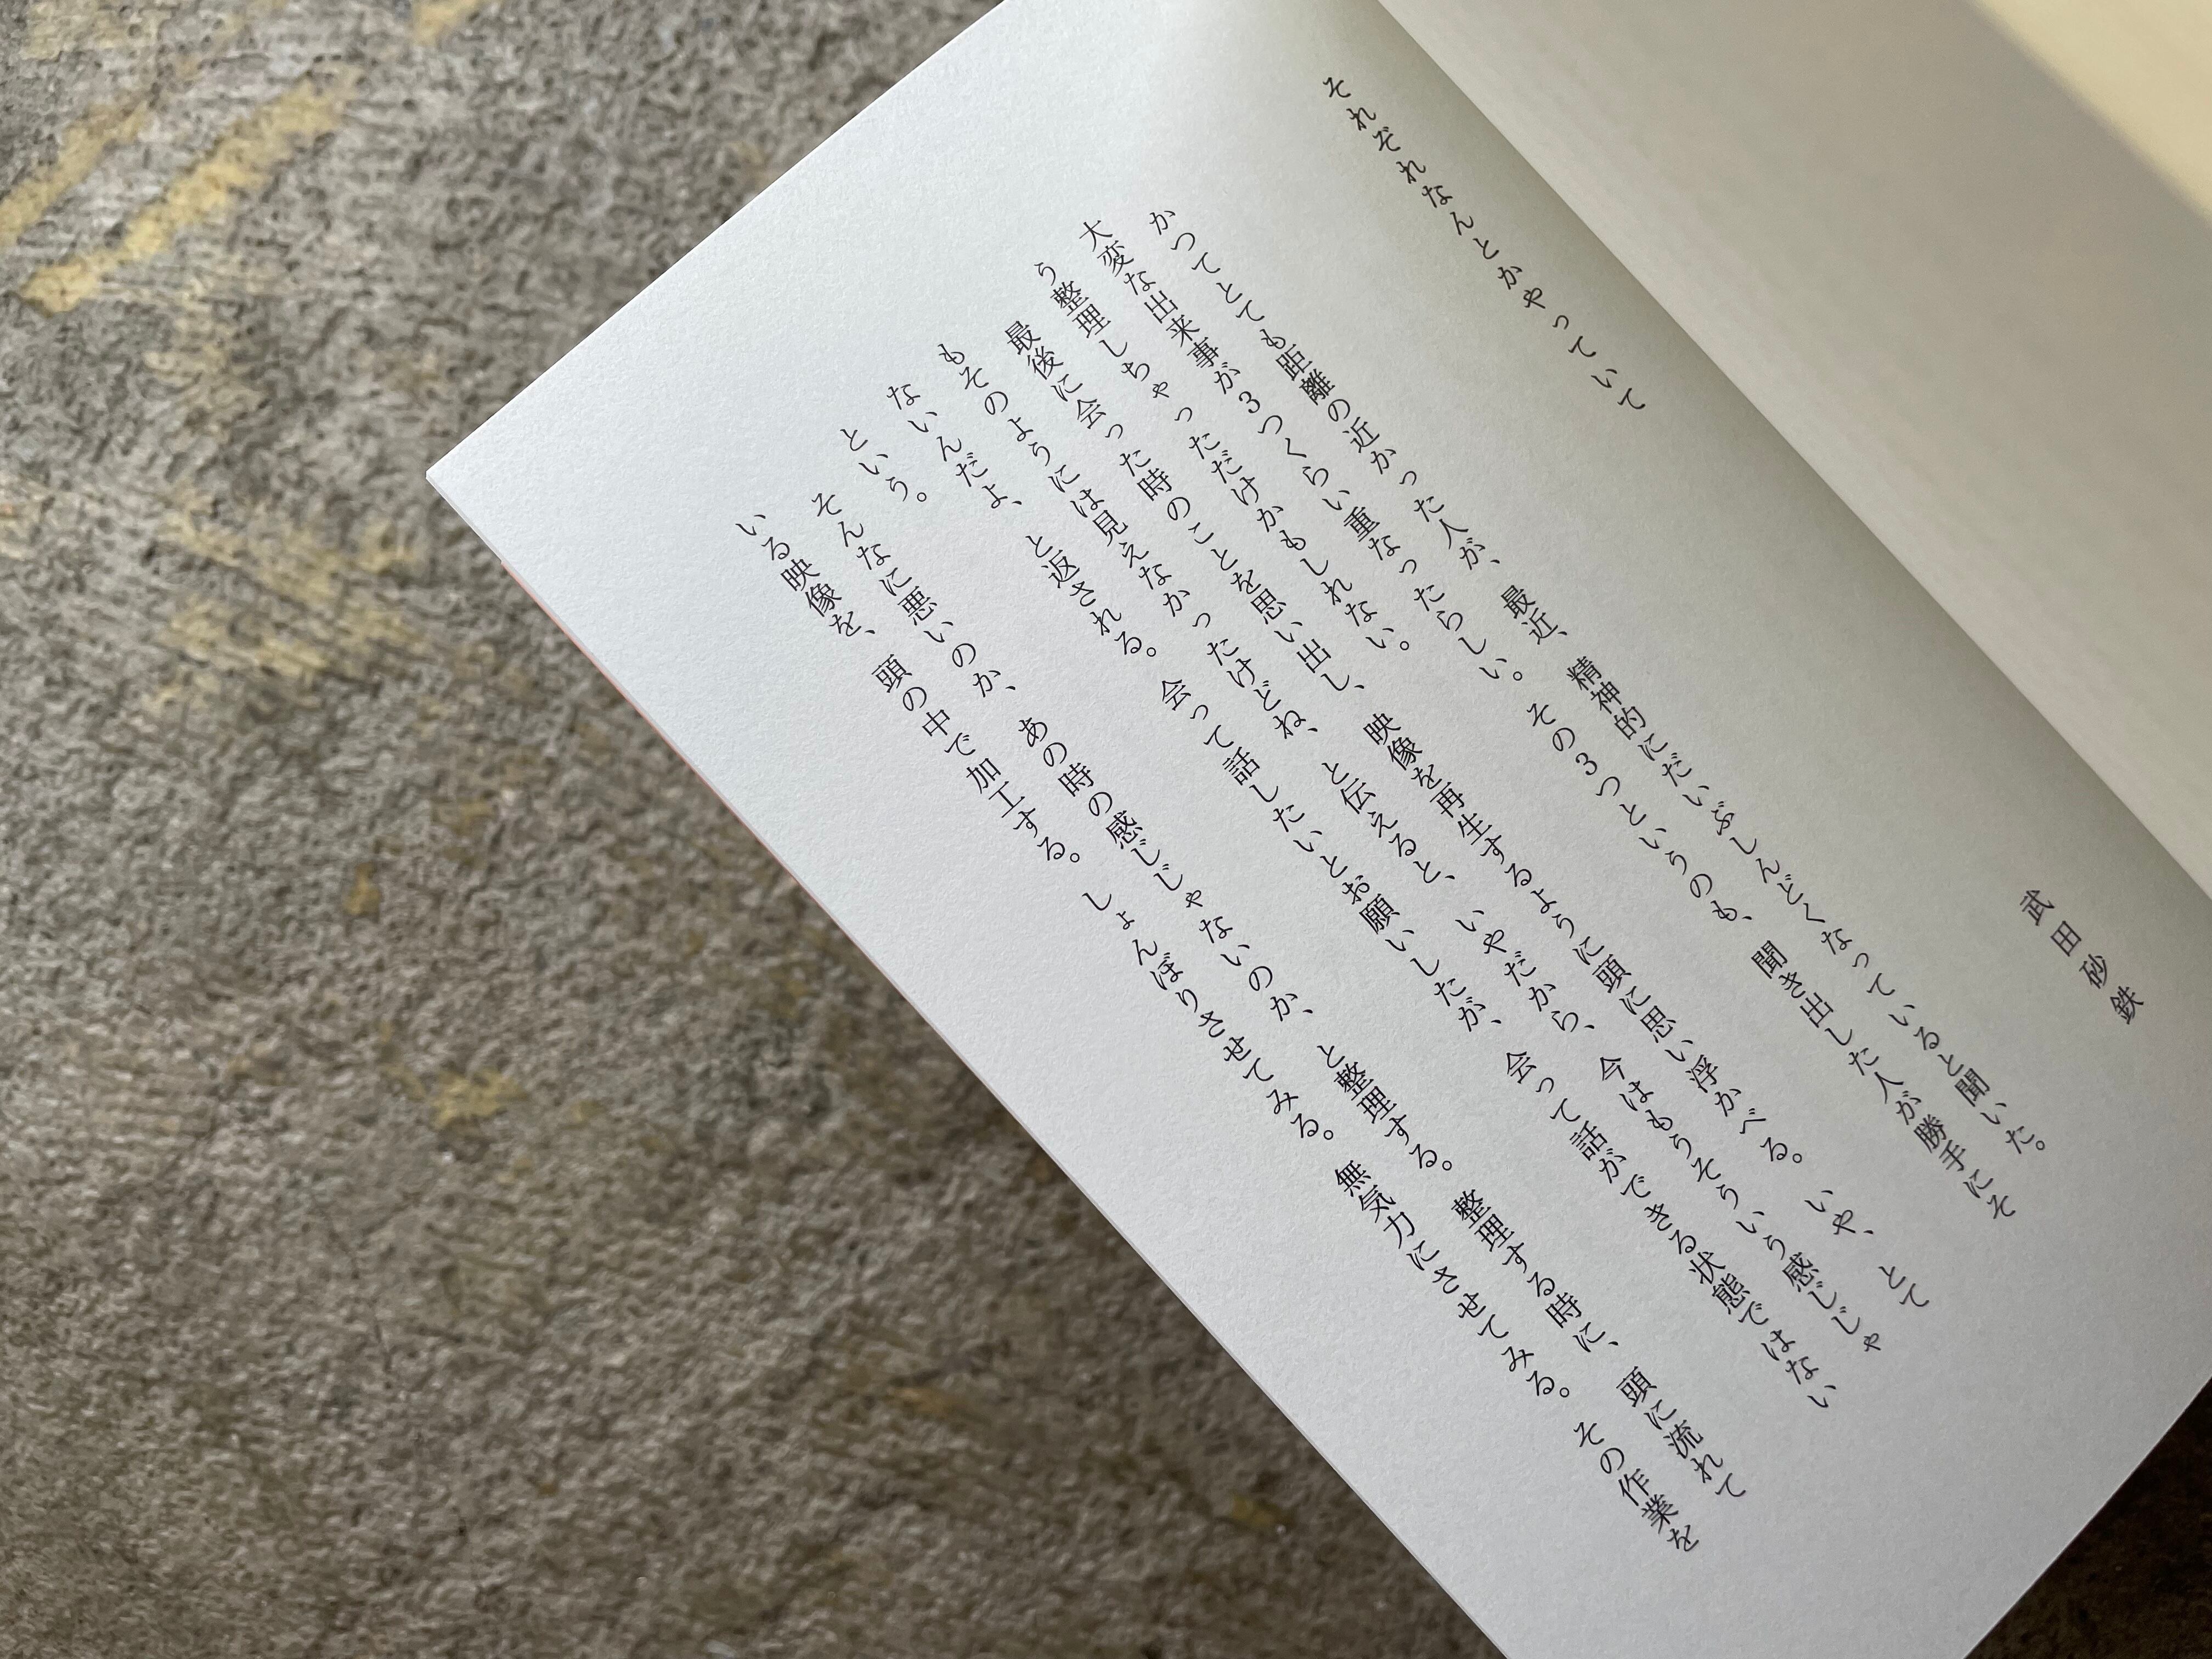 それぞれなんとかやっていて
武田砂鉄
かつてとても距離の近かった人が、最近、精神的にだいぶしんどくなっていると聞いた。
大変な出来事が3つくらい重なったらしい。その3つというのも、聞き出した人が勝手にそ
う整理しちゃっただけかもしれない。
最後に会った時のことを思い出し、映像を再生するように頭に思い浮かべる。いや、とて
もそのようには見えなかったけどね、と伝えると、いやだから、今はもうそういう感じじゃ
ないんだよ、と返される。会って話したいとお願いしたが、会って話ができる状態ではない
という。
そんなに悪いのか、あの時の感じじゃないのか、と整理する。整理する時に、頭に流れて
いる映像を、頭の中で加工する。しょんぼりさせてみる。無気力にさせてみる。その作業を